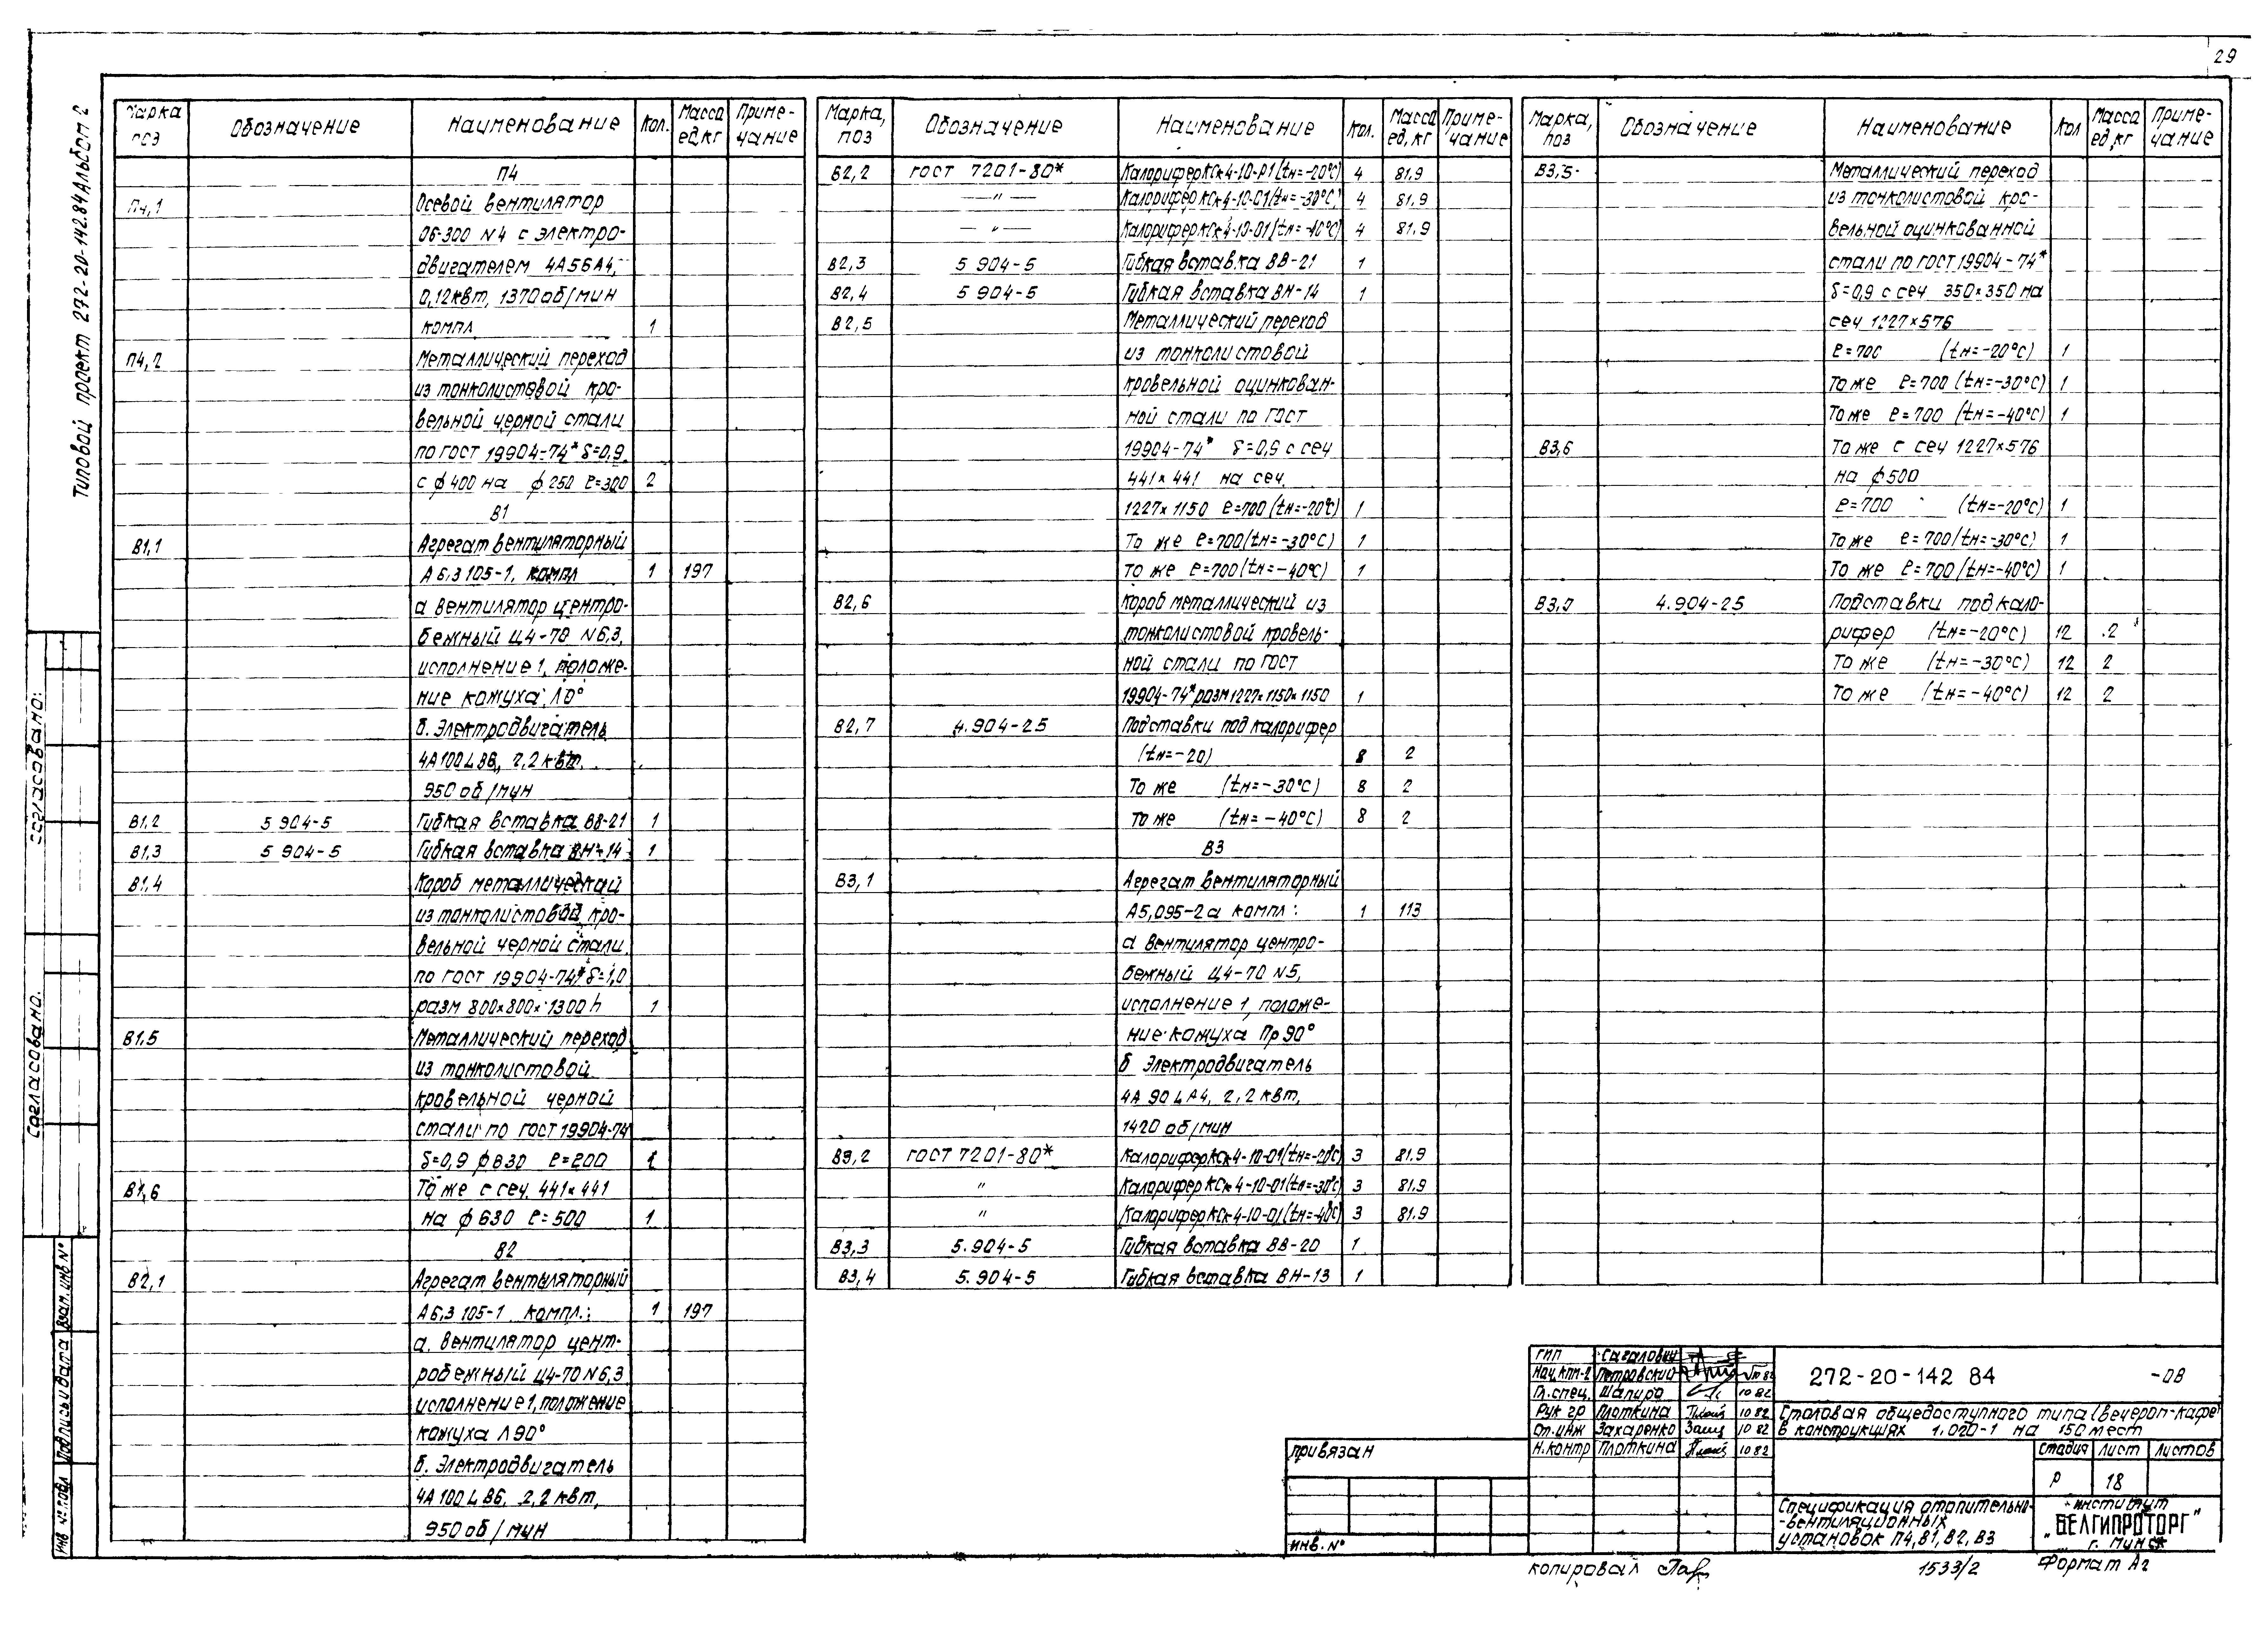 29
Типовой проект 272-20-142.84 Альбом 2
Марка поз Обозначение Наименование Кол. Масса ед,кг Приме-чание
П4
П4,1 Осевой вентилятор
06-300 N4 с электро-
двигателем 4А56А4,
0,12квт, 1370 об/мин
компл 1
П4,2 Металлический переход
из тонколистовой кро-
вельной черной стали
по гост 19904-74* δ=0,9
с ф400 на ф250 ℓ=300 2
В1
В1,1 Агрегат вентиляторный
А 6,3 105-1, компл 1 197
а вентилятор центро-
бежный Ц4-70 N6,3,
исполнение 1, положе-
ние кожуха Л0°
б. Электродвигатель
4А100L В6, 2,2 квт,
950 об/мин
В1,2 5 904-5 Гибкая вставка ВВ-21 1
В1,3 5 904-5 Гибкая вставка ВН-14 1
В1,4 Короб металлический
из тонколистовой кро-
вельной черной стали
по гост 19904-74* δ=1,0
разм 800×800×1300 h 1
В1,5 Металлический переход
из тонколистовой
кровельной черной
стали по гост 19904-74
δ=0,9 ф830 ℓ=200 1
В1,6 То же с сеч. 441×441
на ф630 ℓ=500 1
В2
В2,1 Агрегат вентиляторный
А6,3 105-1 компл.: 1 197
а. Вентилятор цент-
робежный Ц4-70 N6,3
исполнение 1, положение
кожуха Л90°
б. Электродвигатель
4А100L В6, 2,2 квт,
950 об/мин
Марка, поз Обозначение Наименование Кол. Масса ед,кг Приме-чание
В2,2 гост 7201-80* Калорифер КСк4-10-01 (tн=-20°С) 4 81,9
—"— Калорифер КСк4-10-01 (tн=-30°С) 4 81,9
—"— Калорифер КСк4-10-01 (tн=-40°С) 4 81,9
В2,3 5 904-5 Гибкая вставка ВВ-21 1
В2,4 5 904-5 Гибкая вставка ВН-14 1
В2,5 Металлический переход
из тонколистовой
кровельной оцинкован-
ной стали по гост
19904-74* δ=0,9 с сеч
441×441 на сеч.
1227×1150 ℓ=700 (tн=-20°С) 1
То же ℓ=700 (tн=-30°С) 1
То же ℓ=700 (tн=-40°С) 1
В2,6 Короб металлический из
тонколистовой кровель-
ной стали по гост
19904-74* разм 1227×1150×1150 1
В2,7 4.904-25 Подставки под калорифер
(tн=-20) 8 2
То же (tн=-30°С) 8 2
То же (tн=-40°С) 8 2
В3
В3,1 Агрегат вентиляторный
А5,095-2а компл: 1 113
а Вентилятор центро-
бежный Ц4-70 N5,
исполнение 1, положе-
ние кожуха Пр90°
б Электродвигатель
4А 90 L А4, 2,2 квт,
1420 об/мин
В3,2 гост 7201-80* Калорифер КСк4-10-01 (tн=-20°С) 3 81.9
" Калорифер КСк4-10-01 (tн=-30°С) 3 81.9
" Калорифер КСк4-10-01 (tн=-40°С) 3 81.9
В3,3 5.904-5 Гибкая вставка ВВ-20 1
В3,4 5.904-5 Гибкая вставка ВН-13 1
Марка, поз Обозначение Наименование Кол Масса ед,кг Приме-чание
В3,5 Металлический переход
из тонколистовой кро-
вельной оцинкованной
стали по гост 19904-74*
δ=0,9 с сеч 350×350 на
сеч 1227×576
ℓ=700 (tн=-20°С) 1
То же ℓ=700 (tн=-30°С) 1
То же ℓ=700 (tн=-40°С) 1
В3,6 То же с сеч 1227×576
на ф500
ℓ=700 (tн=-20°С) 1
То же ℓ=700 (tн=-30°С) 1
То же ℓ=700 (tн=-40°С) 1
В3,7 4.904-25 Подставки под кало-
рифер (tн=-20°С) 12 2
То же (tн=-30°С) 12 2
То же (tн=-40°С) 12 2
Согласовано:
Согласовано.
Инв № подл Подпись и дата Взам. инв №
Привязан
Инв. №
ГИП Сагалович
Нач. кпм-2 Петровский
Гл. спец. Шапиро 10 82
Рук гр Плоткина 10 82
От. инж Захаренко 10 82
Н.контр Плоткина 10 82
272-20-142 84 -ОВ
Столовая общедоступного типа (вечером-кафе)
в конструкциях 1.020-1 на 150 мест
стадия лист листов
Р 18
Спецификация отопительно-
-вентиляционных
установок П4, В1, В2, В3
институт
"БЕЛГИПРОТОРГ"
г. Минск
копировал
1533/2
Формат А2